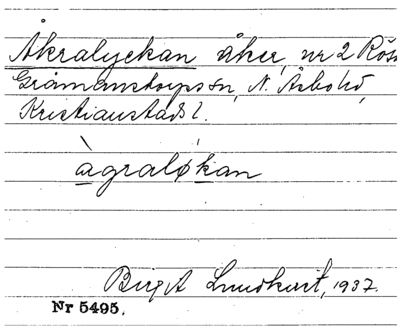 Åkralyckan åker, nr 2 Rös
Gråmanstorps sn, N. Åsbo hd,
Kristianstads l.
àgralø̀kan
Birgit Lundkvist, 1937.
Nr 5495.